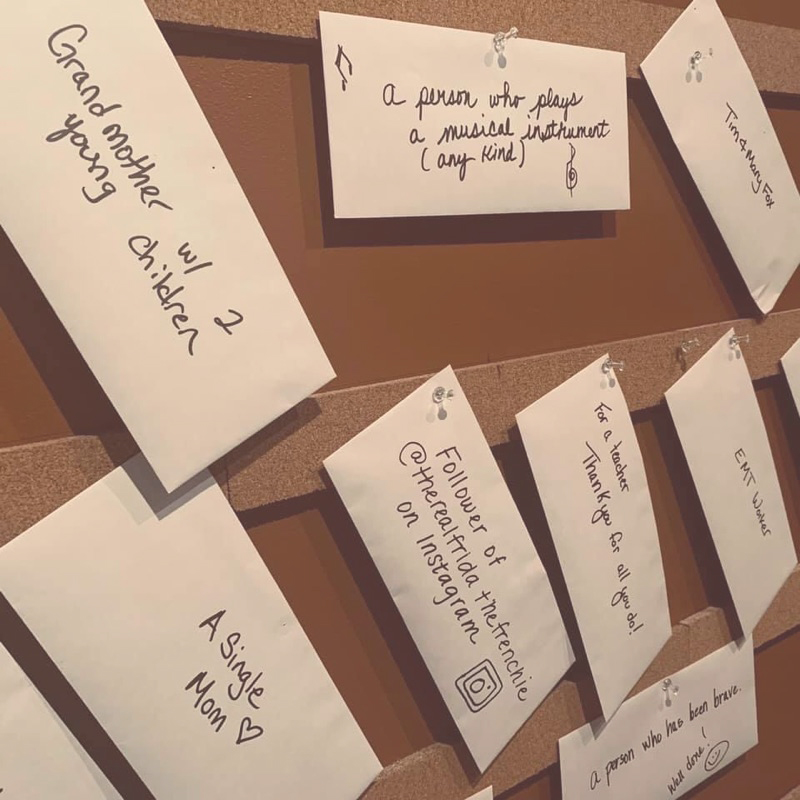 Grandmother w/ 2
young children
a person who plays
a musical instrument
(any kind)
Tim & Mary Fox
A single
Mom
Follower of
@therealfrida thefrenchie
on Instagram
For a teacher
Thank you for all you do!
EMT Worker
a person who has been brave.
Well done!